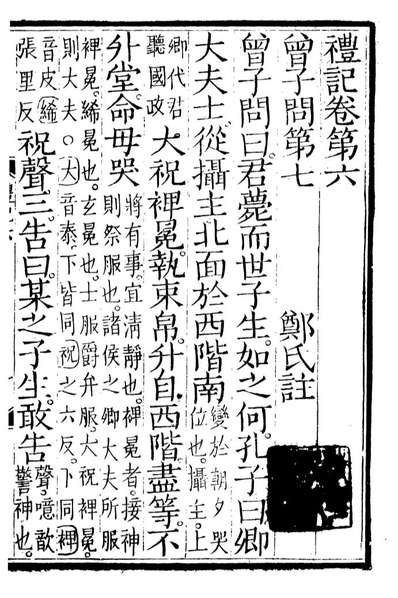 禮記卷第六
曾子問第七　鄭氏註
曾子問曰。君薨而世子生。如之何。孔子曰。卿
大夫士。從攝主北面於西階南變於朝夕哭位也。攝主。上
卿代君聽國政大祝裨冕。執束帛。升自西階。盡等。不
升堂。命毋哭將有事。宜清靜也。裨冕者。接神則祭服也。諸侯之卿大夫所服
裨冕。絺冕也。玄冕也。士服爵弁服。大祝裨冕。則大夫。○大音泰。下皆同。祝之六反。下同。裨
音皮絺張里反祝聲三。告曰。某之子生。敢告聲。噫歆警神也。